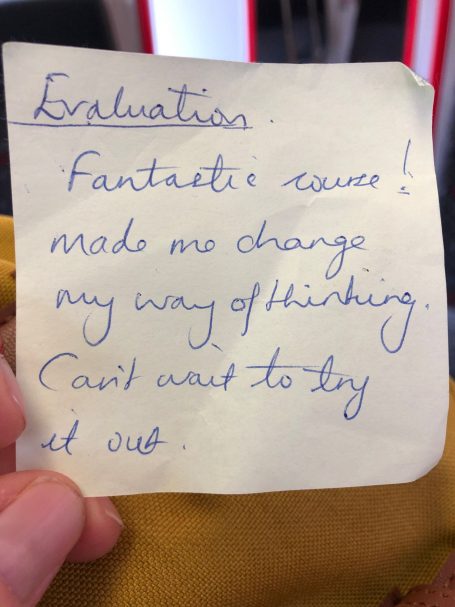 Evaluation.
Fantastic course!
made me change
my way of thinking.
Can't wait to try
it out.